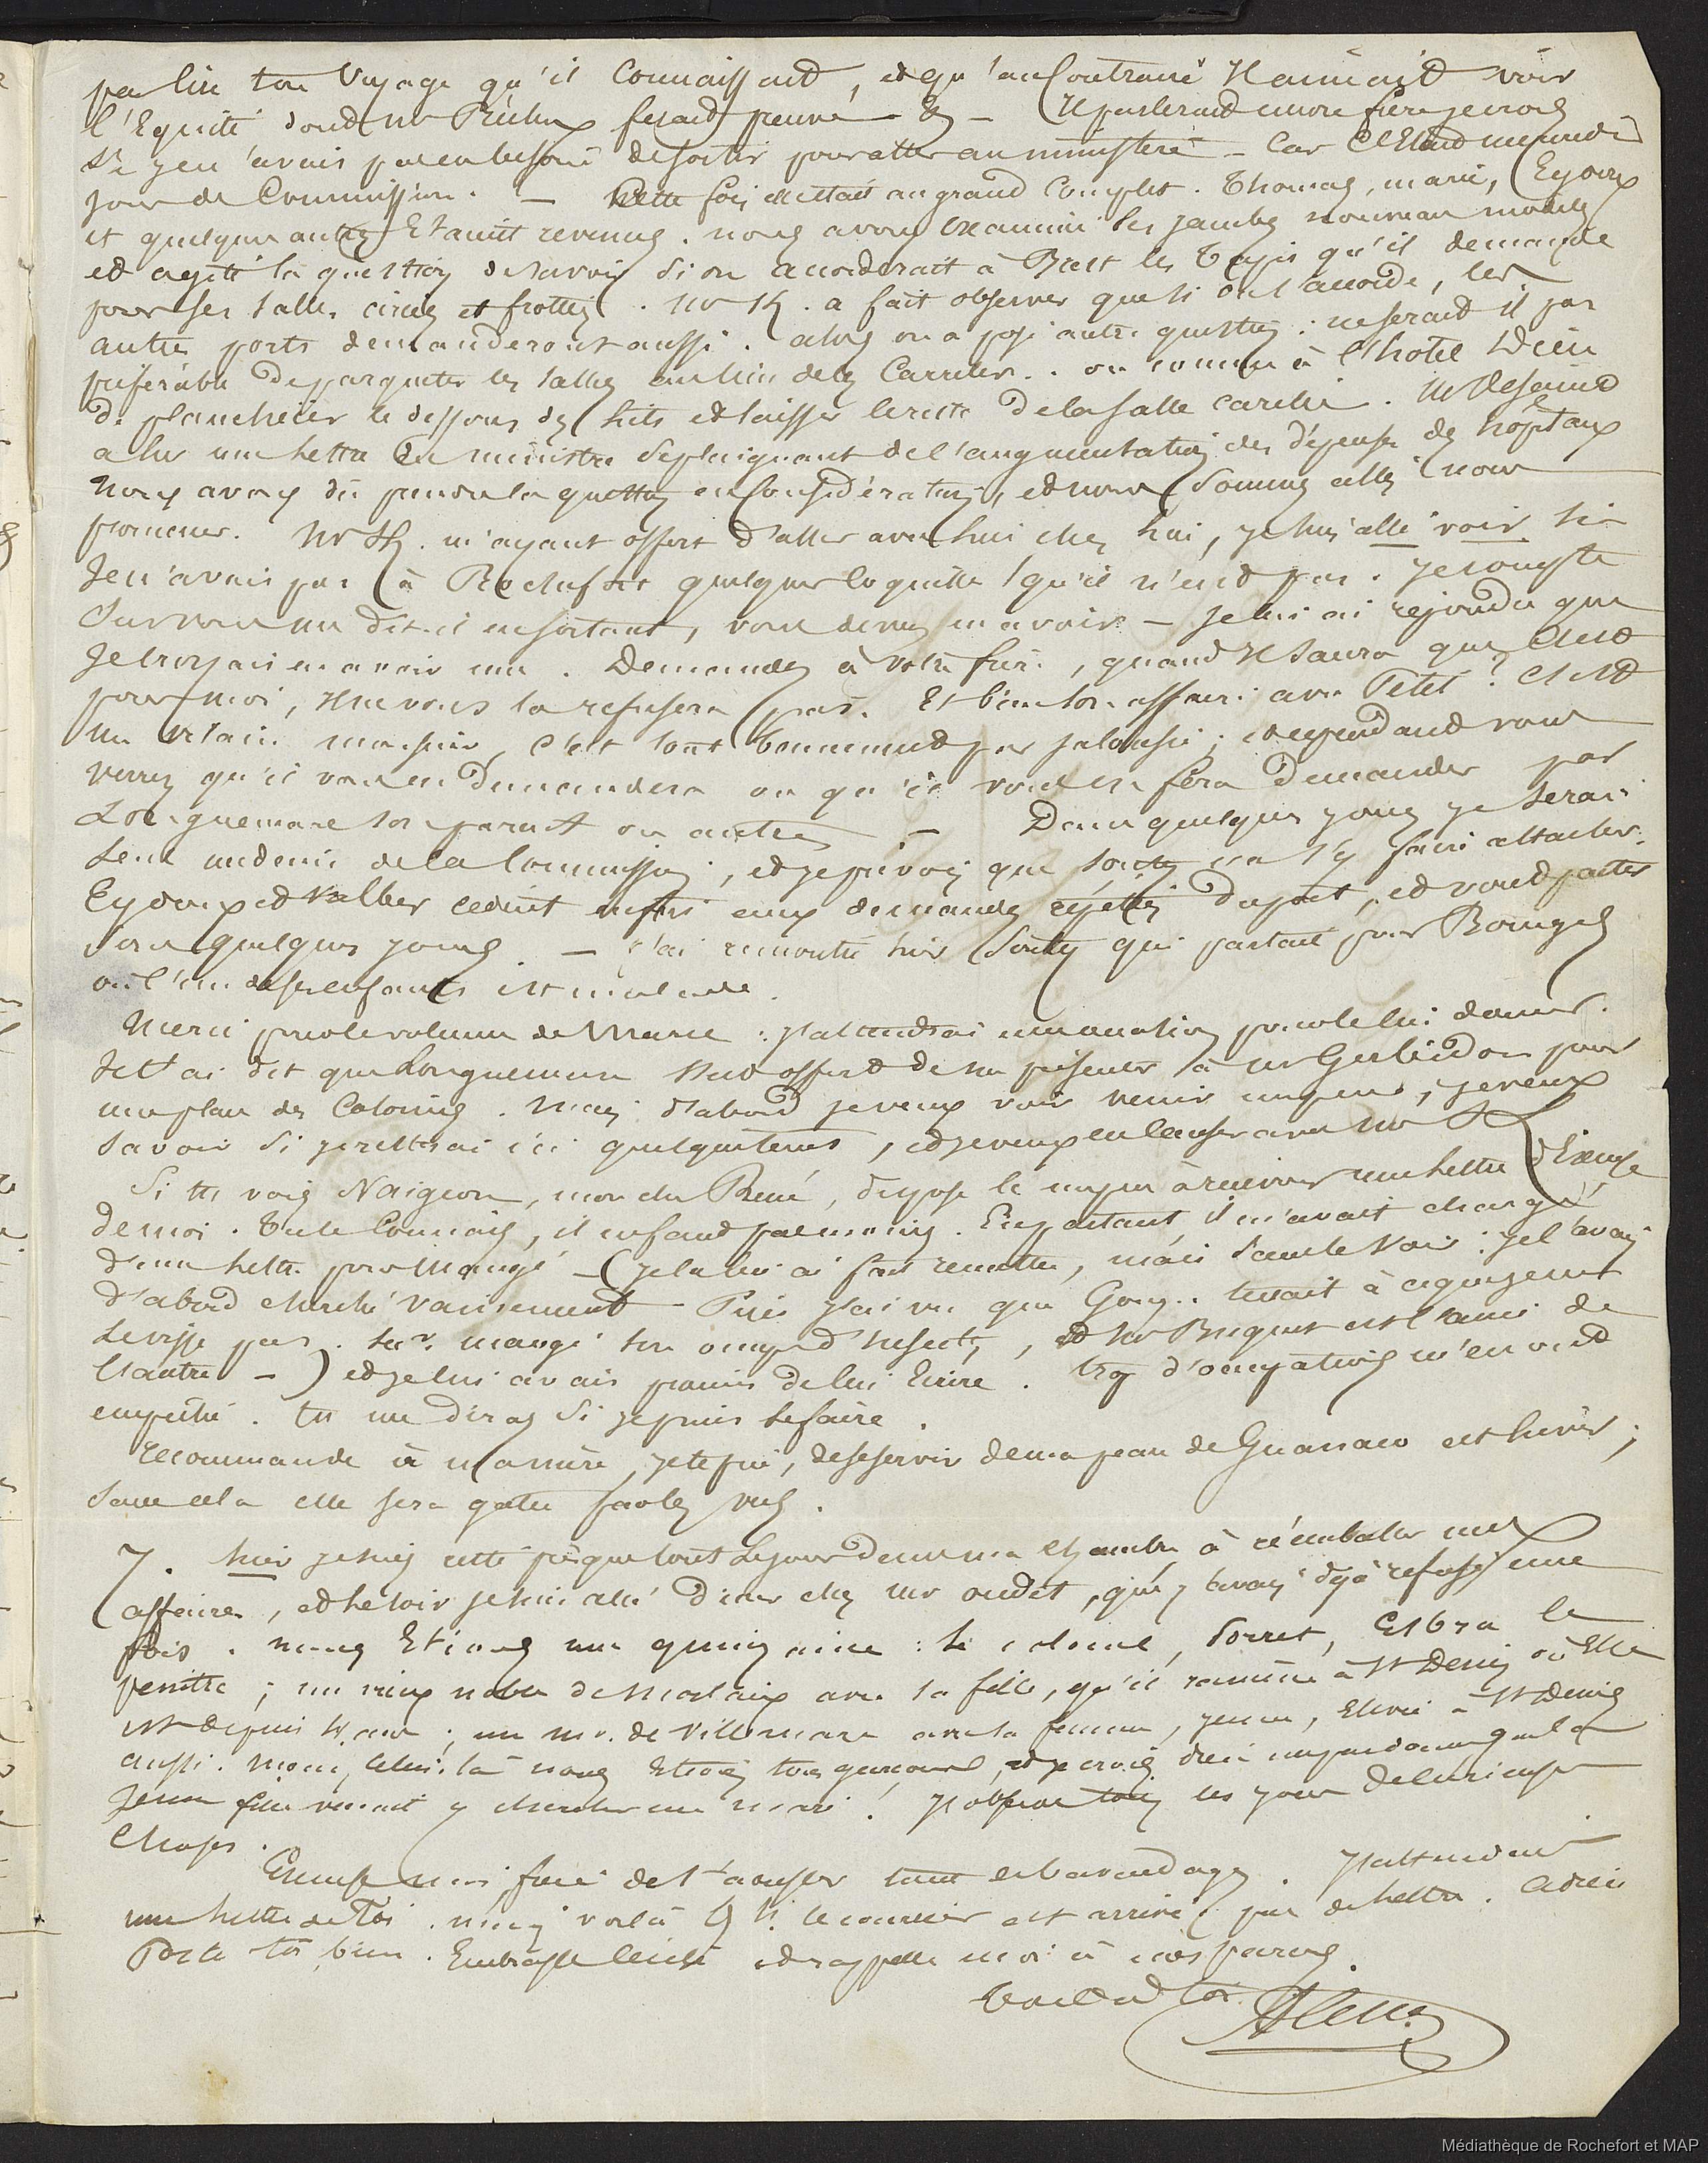 par lire ton Voyage qu'il Connaissait, et qu'au Contraire Il aimait voir
l'Equité dont Mr ferait preuve - & - Il parlerait encore frère je crois
Si je n'avais pas eu besoin de sortir pour aller au ministère - Car C'Etait mercredi
jour de Commission. - Cette fois elle était au grand Complet. Thomas, marie, Eydoux
et quelques autres Etaient revenus. nous avons Examiné les jambes nouveau modèle
et agité la question de savoir Si on accorderait à Brest les Tapis qu'il demande
pour ses salles cirées et frottées. Mr K. a fait observer que si on l'accorde, les
autres ports demanderont aussi. alors on a posé autre question : ne serait il pas
préférable de parqueter les salles au lieu de les Carreler.. ou comme à l'hotel Dieu
de plancheier le dessous des lits et laisser le reste de la salle carelée. Mr
a lu une lettre du ministre se plaignant de l'augmentation des dépenses des hôpitaux
Nous avons dû prendre la question en Considération, et nous Sommes allés nous
promener. Mr K. m'ayant offert d'aller avec lui chez lui, je suis allé voir si
Je n'avais pas à Rochefort quelques coquilles qu'il n'eut pas. Je compte
Sur vous me dit-il en sortant, vous devez en avoir - Je lui ai répondu que
Je croyais en avoir une. Demandez à votre frère, quand Il saura que C'est
pour moi, Il ne vous la refusera pas. Et bien son affaire avec Petit ? C'est
un vilain monsieur, c'est tout bonnement par jalousie ; et cependant vous
verrez qu'il vous en demandera ou qu'il vous en fera demander par
Longuemare son parent ou autres - Dans quelques jours je serai
seul médecin de la Commission, et je prévois que Souty va s'y faire attacher.
Eydoux et cedent enfin aux demandes répétées du port, et vont partir
dans quelques jours. - J'ai rencontré hier Souty qui partait pour Bourges
où l'un de ses enfants est malade.
Merci pour le volume de Marie : J'attendrai une occasion pour le lui donner.
Je t'ai dit que Longuemare s'est offert de me présenter à Mr Gerbidon pour
une place des Colonies. Mais d'abord je veux voir venir un peu, je veux
savoir Si je resterai ici quelque tems, et je veux en Causer avec Mr K
Si tu vois Naigeon, mon cher René, dispose le un peu à recevoir une lettre d'Excuse
de moi. Tu le Connais, il en faut pas moins. En partant, il m'avait chargé
d'une lettre pour Maugé - (je la lui ai fait remettre, mais Sans le Voir : je l'avais
d'abord cherché vainement - Puis j'ai vu que Goy.. tenait à ce que je ne
le visse pas. Mr. maugé s'occupe d'Insectes, et Mr est l'ami de
l'autre -) et je lui avais promis de lui Ecrire. trop d'occupations m'en ont
empêché. Tu me diras Si je puis le faire.
Recommande à ma mère, je te prie, de se servir de ma peau de Guanaco cet hiver ;
Sans cela elle sera gatée par les vers.
7. hier je suis resté presque tout le jour dans ma Chambre à réemballer mes
affaires, et le soir je suis allé Diner chez Mr oudet, que j'avais déjà refusé une
fois. nous Etions une quinzaine : le colonel, Dorret, la
; un vieux noble de Morlaix avec sa fille, qu'il ramène à St Denis où Elle
est depuis 4 ans ; un Mr. de Villemare avec sa femme, jeune, Elevée à St Denis
aussi. Moins celui-là nous étions tous garçons, et je crois dieu me pardonne que la
Jeune fille venait y chercher un mari ! J'observe tous les jours de curieuses
Choses.
Excuse moi frère de t'amuser tant de bavardages. J'attendais
une lettre de Toi. mais voilà 4 h. le courrier est arrivé, pas de lettre. Adieu
Porte toi bien. Embrasse et rappelle moi à nos parens.
tout à toi